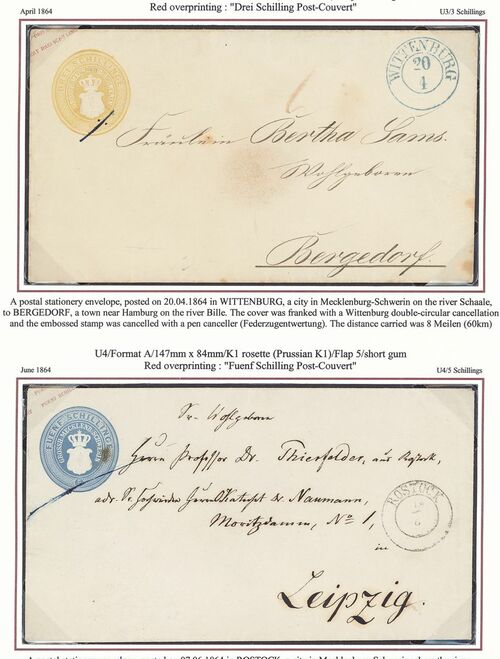 Red overprinting : "Drei Schilling Post-Couvert"
April 1864
U3/3 Schillings
WITTENBURG
20
4
Fräulein Bertha Sams.
Wohlgeboren
Bergedorf.
A postal stationery envelope, posted on 20.04.1864 in WITTENBURG, a city in Mecklenburg-Schwerin on the river Schaale,
to BERGEDORF, a town near Hamburg on the river Bille. The cover was franked with a Wittenburg double-circular cancellation
and the embossed stamp was cancelled with a pen canceller (Federzugentwertung). The distance carried was 8 Meilen (60km)
U4/Format A/147mm x 84mm/K1 rosette (Prussian K1)/Flap 5/short gum
Red overprinting : "Fuenf Schilling Post-Couvert"
June 1864
U4/5 Schillings
FUENF SCHILLING
GROSSH. MECKLENB. SCHWERIN
Sr. Wohlgeboren
Herrn Professor Dr. Thierfelder, aus Rostock,
adr. Sr. Herrn Dr. Naumann,
Moritzdamm, No 1,
in
Leipzig.
ROSTOCK